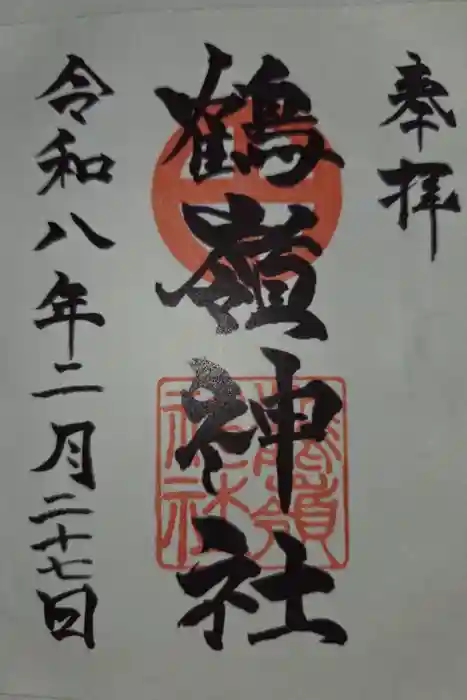 奉拝
鶴嶺神社
令和八年二月二十七日